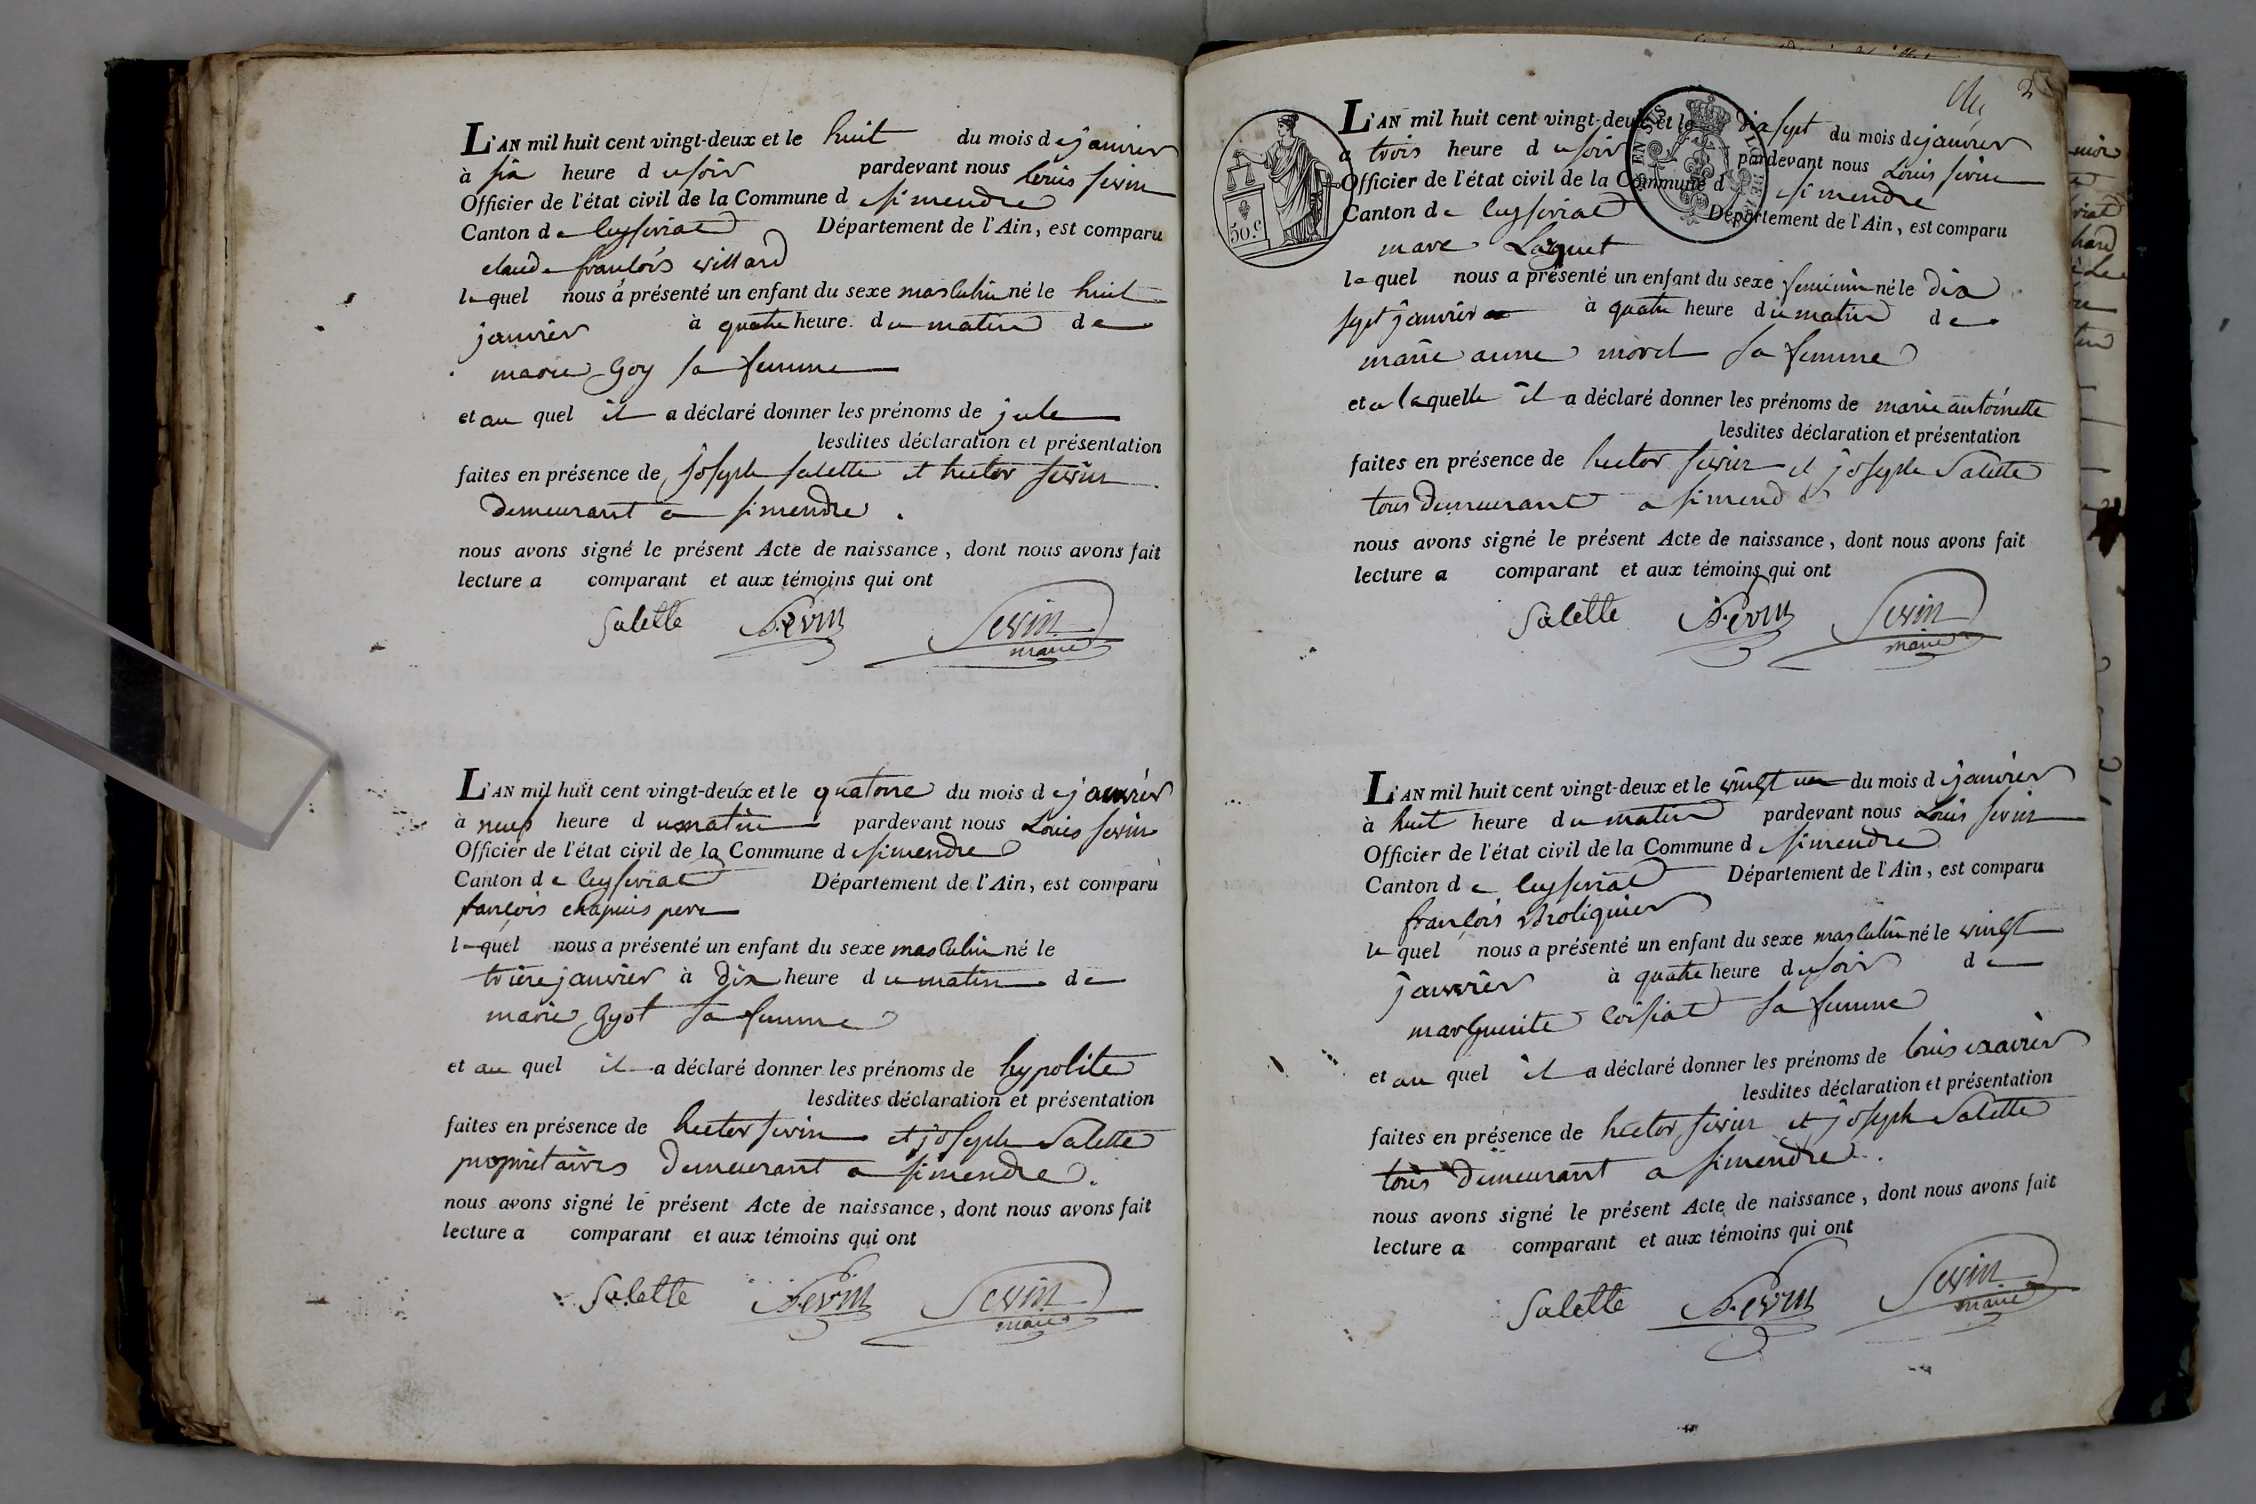 L'AN mil huit cent vingt-deux et le huit du mois de janvier
à six heure du soir pardevant nous Louis sevin
Officier de l'état civil de la Commune de simendre
Canton de Ceyseriat Département de l'Ain, est comparu
claude françois willard
lequel nous a présenté un enfant du sexe masculin né le huit
janvier à quatre heure du matin de
marie Goy sa femme
et au quel il a déclaré donner les prénoms de jule
lesdites déclaration et présentation
faites en présence de joseph salette et hector sevin
Demeurant a simendre.
nous avons signé le présent Acte de naissance, dont nous avons fait
lecture a comparant et aux témoins qui ont
Salette h. Sevin Sevin
maire
L'AN mil huit cent vingt-deux et le quatorze du mois de janvier
à neuf heure du matin pardevant nous Louis sevin
Officier de l'état civil de la Commune de simendre
Canton de Ceyseriat Département de l'Ain, est comparu
françois chapuis pere
lequel nous a présenté un enfant du sexe masculin né le
treize janvier à dix heure du matin de
marie Gyot sa femme
et au quel il a déclaré donner les prénoms de hypolite
lesdites déclaration et présentation
faites en présence de hector sevin et joseph Salette
propriétaires Demeurant a simendre.
nous avons signé le présent Acte de naissance, dont nous avons fait
lecture a comparant et aux témoins qui ont
Salette h. Sevin Sevin
maire
2
L'AN mil huit cent vingt-deux et le dix sept du mois de janvier
a trois heure du soir pardevant nous Louis sevin
Officier de l'état civil de la Commune de simendre
Canton de Ceyseriat Département de l'Ain, est comparu
50 c
marc Laguet
lequel nous a présenté un enfant du sexe feminin né le dix
sept janvier à quatre heure du matin de
marie anne morel sa femme
et a laquelle il a déclaré donner les prénoms de marie antoinette
lesdites déclaration et présentation
faites en présence de hector sevin et joseph Salette
tous Demeurant a simendre
nous avons signé le présent Acte de naissance, dont nous avons fait
lecture a comparant et aux témoins qui ont
Salette h. Sevin Sevin
maire
L'AN mil huit cent vingt-deux et le vingt un du mois de janvier
à huit heure du matin pardevant nous Louis sevin
Officier de l'état civil de la Commune de simendre
Canton de Ceyseriat Département de l'Ain, est comparu
françois Broliquier
le quel nous a présenté un enfant du sexe masculin né le vingt
janvier à quatre heure du soir de
marguerite Coisiat sa femme
et au quel il a déclaré donner les prénoms de louis exavier
lesdites déclaration et présentation
faites en présence de hector sevin et joseph Salette
tous Demeurant a simendre.
nous avons signé le présent Acte de naissance, dont nous avons fait
lecture a comparant et aux témoins qui ont
Salette h. Sevin Sevin
maire